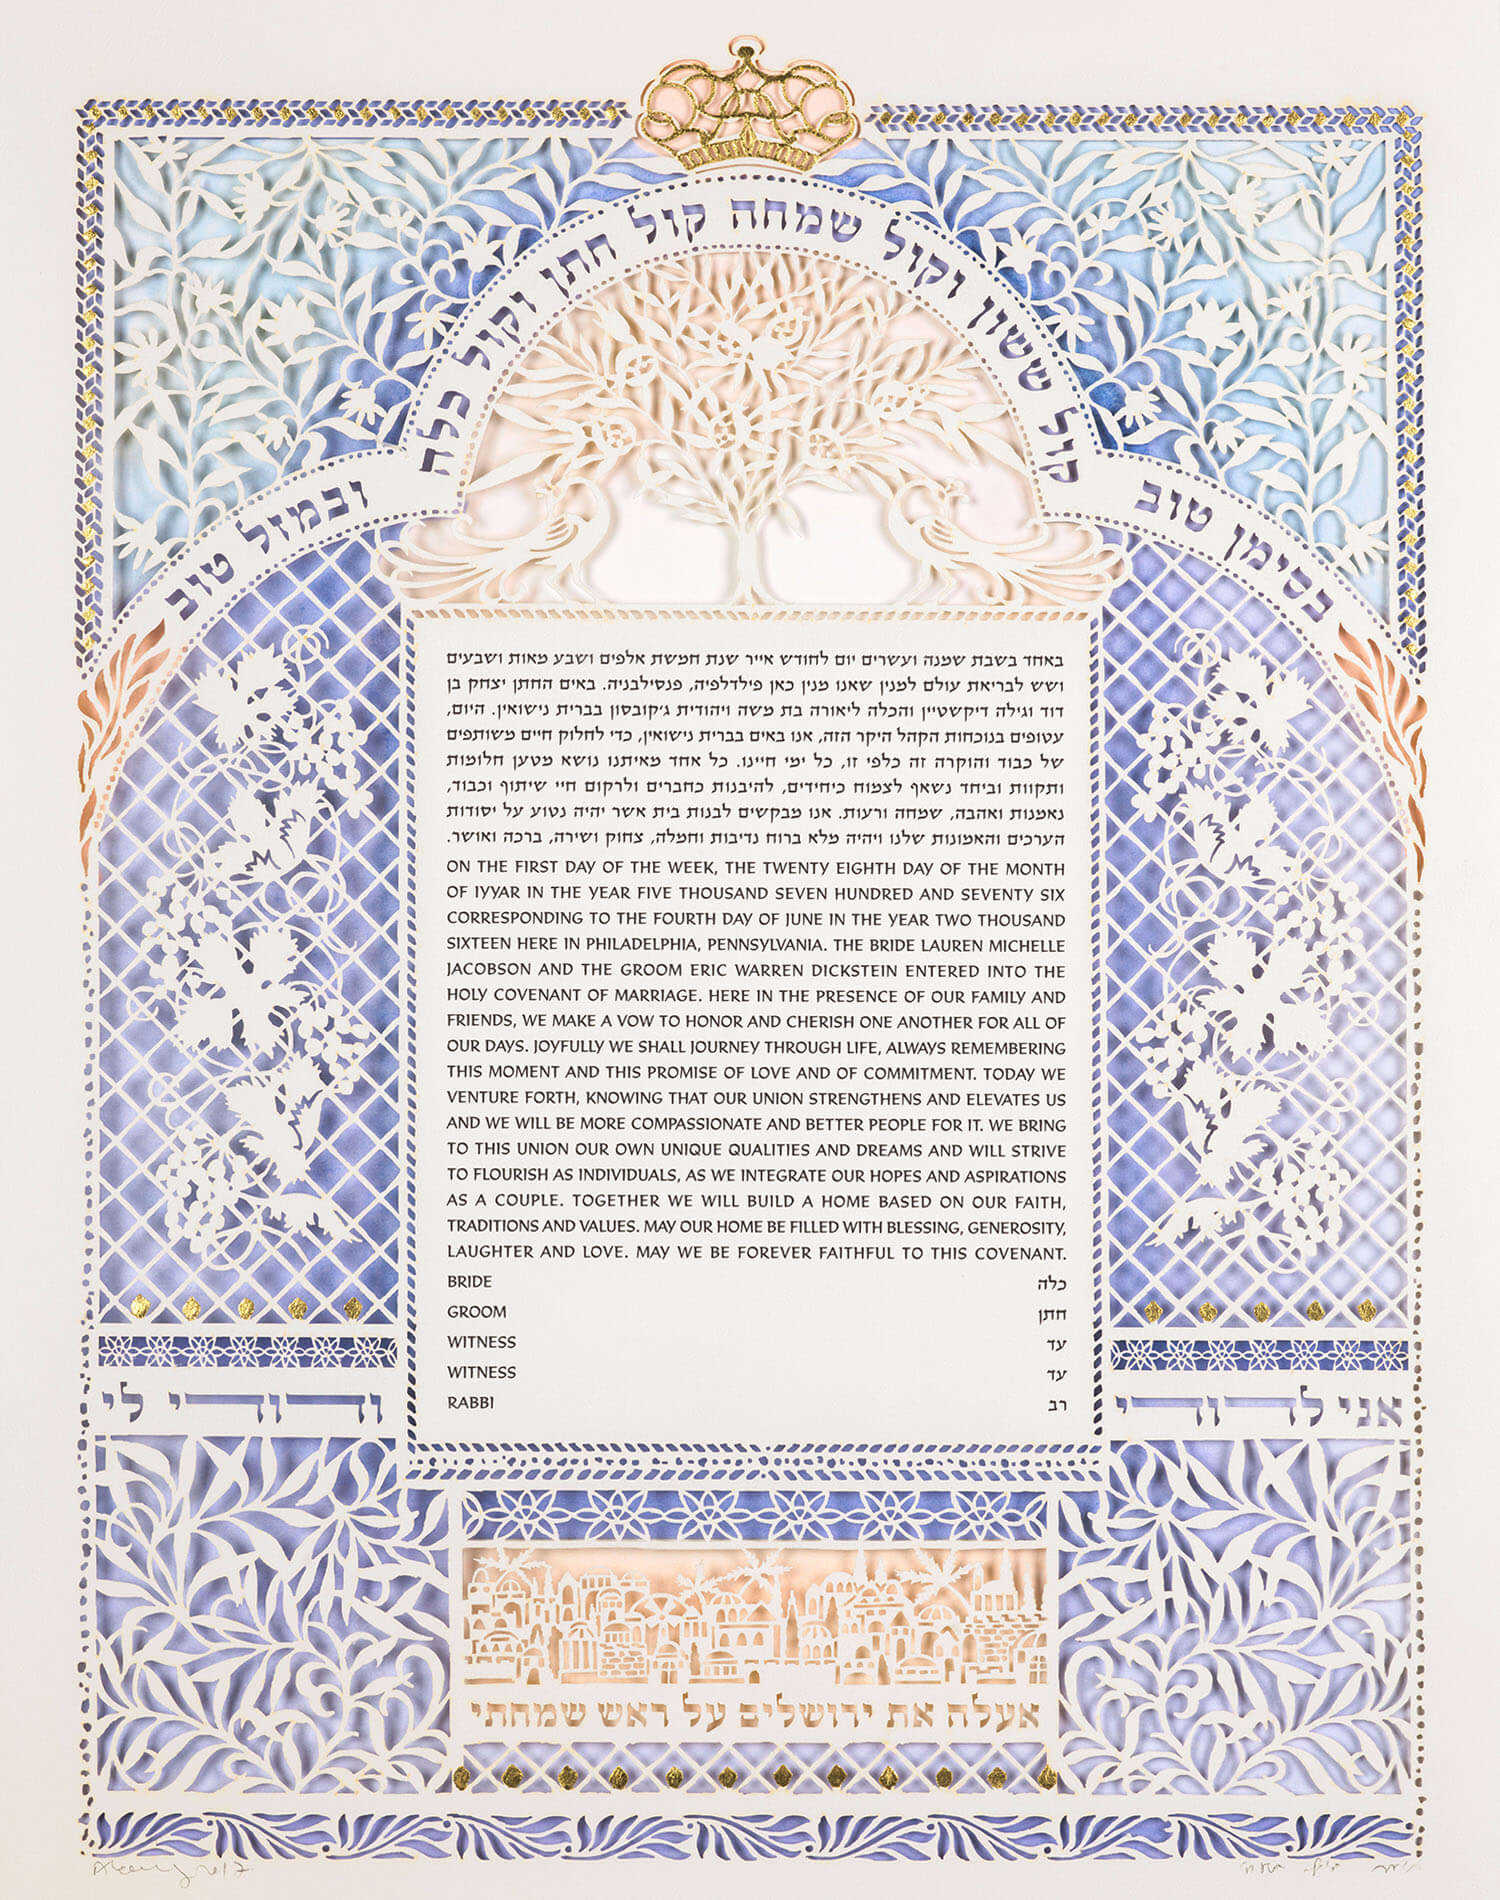 קול ששון וקול שמחה קול חתן וקול כלה
בסימן טוב
ובמזל טוב
באחד בשבת שמנה ועשרים יום לחודש אייר שנת חמשת אלפים ושבע מאות ושבעים
ושש לבריאת עולם למנין שאנו מנין כאן פילדלפיה, פנסילבניה. באים החתן יצחק בן
דוד וגילה דיקשטיין והכלה ליאורה בת משה ויהודית ג׳קובסון בברית נישואין. היום,
עטופים בנוכחות הקהל היקר הזה, אנו באים בברית נישואין, כדי לחלוק חיים משותפים
של כבוד והוקרה זה כלפי זו, כל ימי חיינו. כל אחד מאיתנו נושא מטען חלומות
ותקוות וביחד נשאף לצמוח כיחידים, להיבנות כחברים ולרקום חיי שיתוף וכבוד,
נאמנות ואהבה, שמחה ורעות. אנו מבקשים לבנות בית אשר יהיה נטוע על יסודות
הערכים והאמונות שלנו ויהיה מלא ברוח נדיבות וחמלה, צחוק ושירה, ברכה ואושר.
ON THE FIRST DAY OF THE WEEK, THE TWENTY EIGHTH DAY OF THE MONTH
OF IYYAR IN THE YEAR FIVE THOUSAND SEVEN HUNDRED AND SEVENTY SIX
CORRESPONDING TO THE FOURTH DAY OF JUNE IN THE YEAR TWO THOUSAND
SIXTEEN HERE IN PHILADELPHIA, PENNSYLVANIA. THE BRIDE LAUREN MICHELLE
JACOBSON AND THE GROOM ERIC WARREN DICKSTEIN ENTERED INTO THE
HOLY COVENANT OF MARRIAGE. HERE IN THE PRESENCE OF OUR FAMILY AND
FRIENDS, WE MAKE A VOW TO HONOR AND CHERISH ONE ANOTHER FOR ALL OF
OUR DAYS. JOYFULLY WE SHALL JOURNEY THROUGH LIFE, ALWAYS REMEMBERING
THIS MOMENT AND THIS PROMISE OF LOVE AND OF COMMITMENT. TODAY WE
VENTURE FORTH, KNOWING THAT OUR UNION STRENGTHENS AND ELEVATES US
AND WE WILL BE MORE COMPASSIONATE AND BETTER PEOPLE FOR IT. WE BRING
TO THIS UNION OUR OWN UNIQUE QUALITIES AND DREAMS AND WILL STRIVE
TO FLOURISH AS INDIVIDUALS, AS WE INTEGRATE OUR HOPES AND ASPIRATIONS
AS A COUPLE. TOGETHER WE WILL BUILD A HOME BASED ON OUR FAITH,
TRADITIONS AND VALUES. MAY OUR HOME BE FILLED WITH BLESSING, GENEROSITY,
LAUGHTER AND LOVE. MAY WE BE FOREVER FAITHFUL TO THIS COVENANT.
BRIDE כלה
GROOM חתן
WITNESS עד
WITNESS עד
RABBI רב
אני לדודי
ודודי לי
אעלה את ירושלים על ראש שמחתי
2017